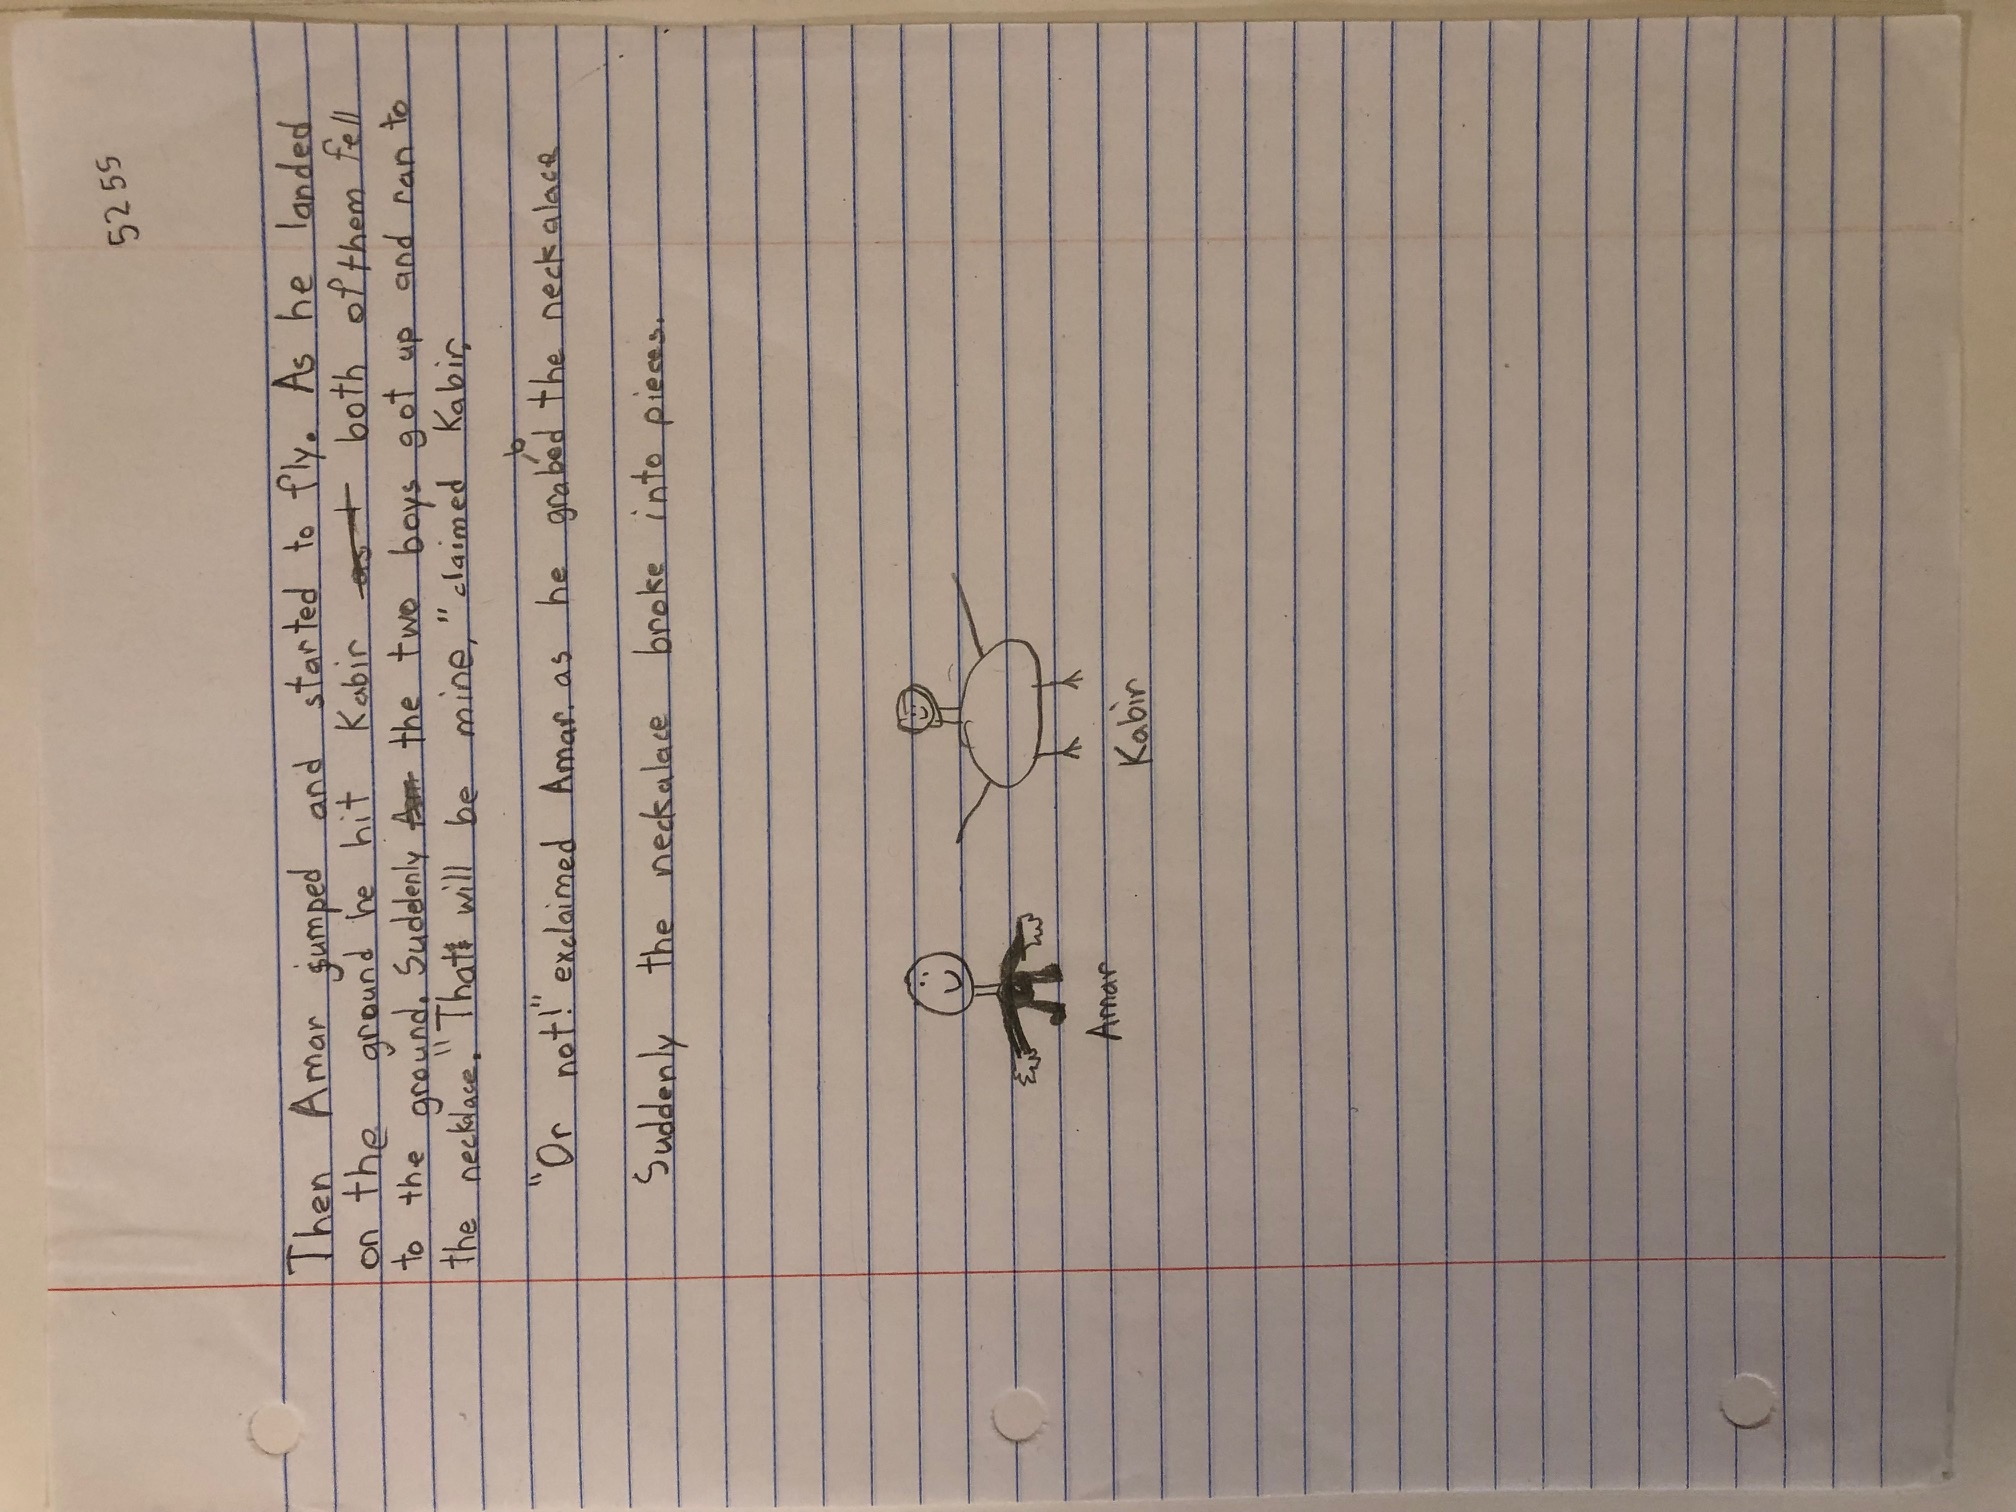 5255
Then Amar jumped and started to fly. As he landed
on the ground he hit Kabir both of them fell
to the ground. Suddenly the two boys got up and ran to
the necklace. "That will be mine," claimed Kabir.
"Or not!" exclaimed Amar. as he grabbed the neckalace
Suddenly the neckalace broke into pieces.
Amar
Kabir